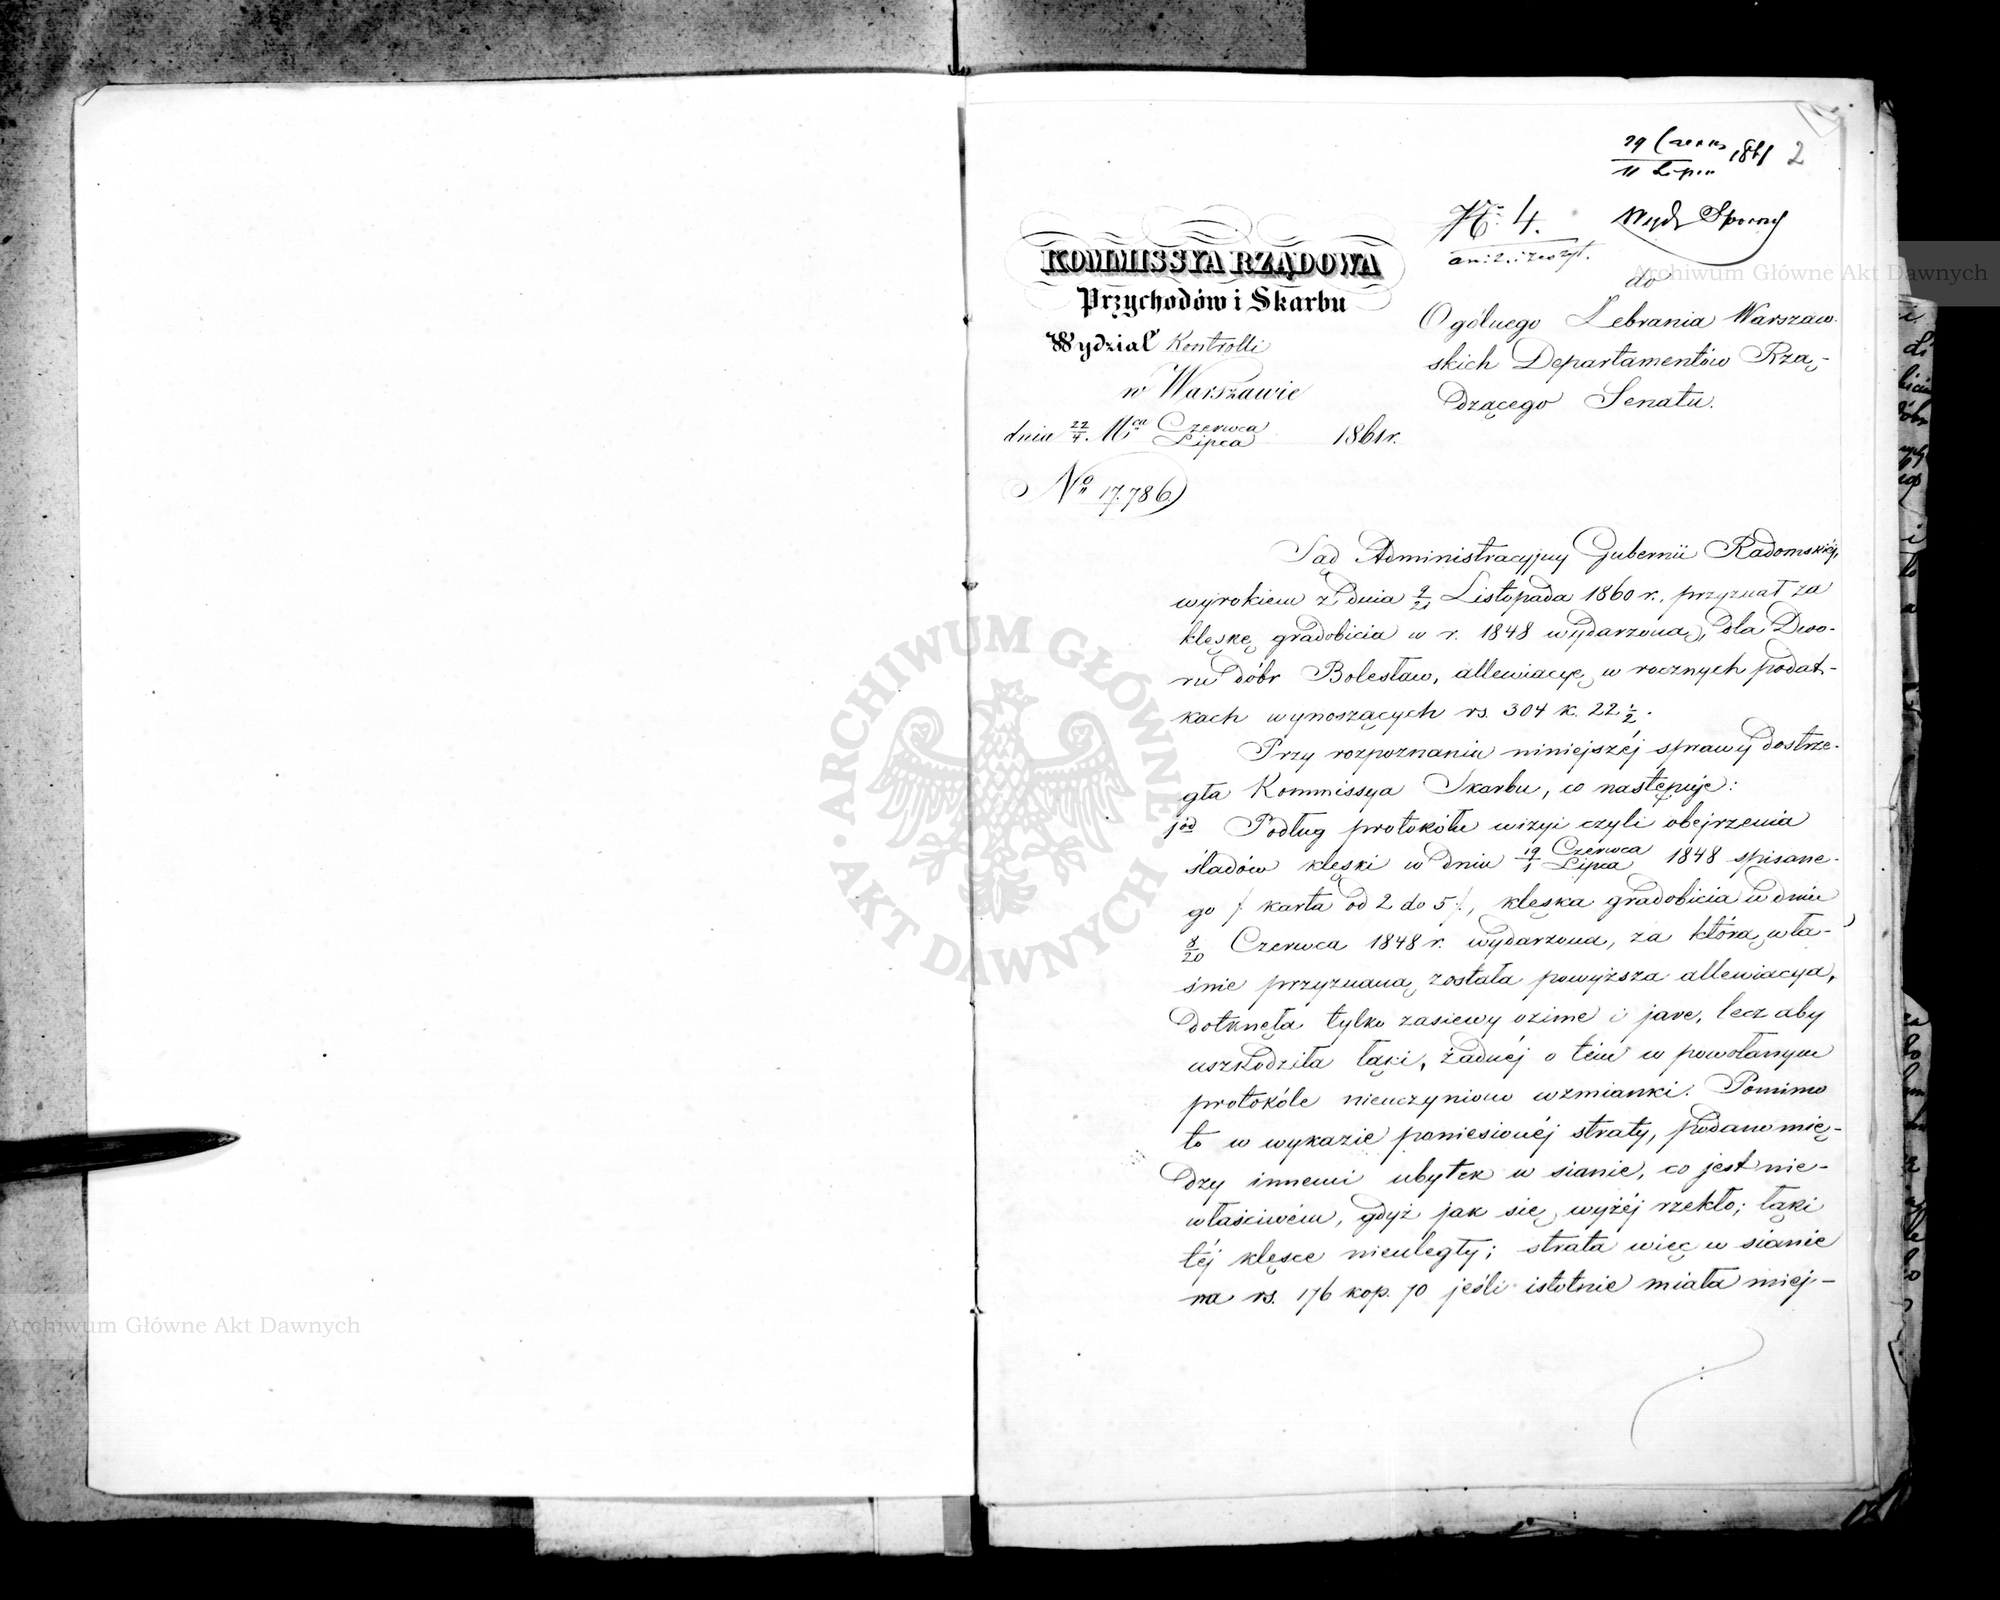 29 Czerw 1861 2
11 Lipca
Nr. 4.
Wydz Sporny
KOMMISSYA RZĄDOWA
Przychodów i Skarbu
Wydział Kontrolli
w Warszawie
dnia 22/4 Mca Czerwca/Lipca 1861 r.
No 17.786
do
Ogólnego Zebrania Warszaw-
skich Departamentów Rzą-
dzącego Senatu.
Sąd Administracyjny Gubernii Radomskiéj,
wyrokiem z dnia 9/21 Listopada 1860 r., przyznał za
klęskę gradobicia w r. 1848 wydarzoną, dla Dwo-
ru dóbr Bolesław, allewiacyę w rocznych podat-
kach wynoszących rs. 304 k. 22 1/2.
Przy rozpoznaniu niniejszéj sprawy dostrze-
gła Kommissya Skarbu, co następuje:
jód Podług protokółu wizyi czyli obejrzenia
śladów klęski w dniu 19/1 Czerwca/Lipca 1848 spisane-
go /: karta od 2 do 5 :/, klęska gradobicia w dniu
8/20 Czerwca 1848 r. wydarzona, za którą wła-
śnie przyznaną została powyższa allewiacya,
dotknęła tylko zasiewy ozime i jare, lecz aby
uszkodziła łąki, żadnéj o tém w powołanym
protokóle nieuczyniono wzmianki. Pomimo
to w wykazie poniesionéj straty, podano mię-
dzy innemi ubytek w sianie, co jest nie-
właściwém, gdyż jak się wyżéj rzekło; łąki
téj klęsce nieuległy; strata więc w sianie
na rs. 176 kop. 70 jeśli istotnie miała miej-
Archiwum Główne Akt Dawnych
ARCHIWUM GŁÓWNE AKT DAWNYCH
Archiwum Główne Akt Dawnych